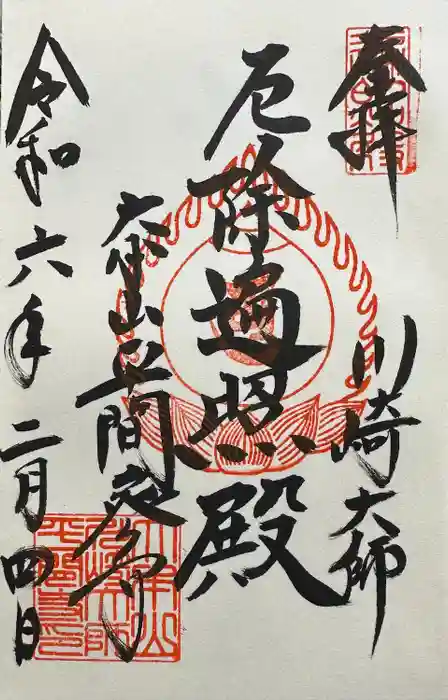 奉拝
川崎大師
厄除遍照殿
大本山平間
令和六年二月四日